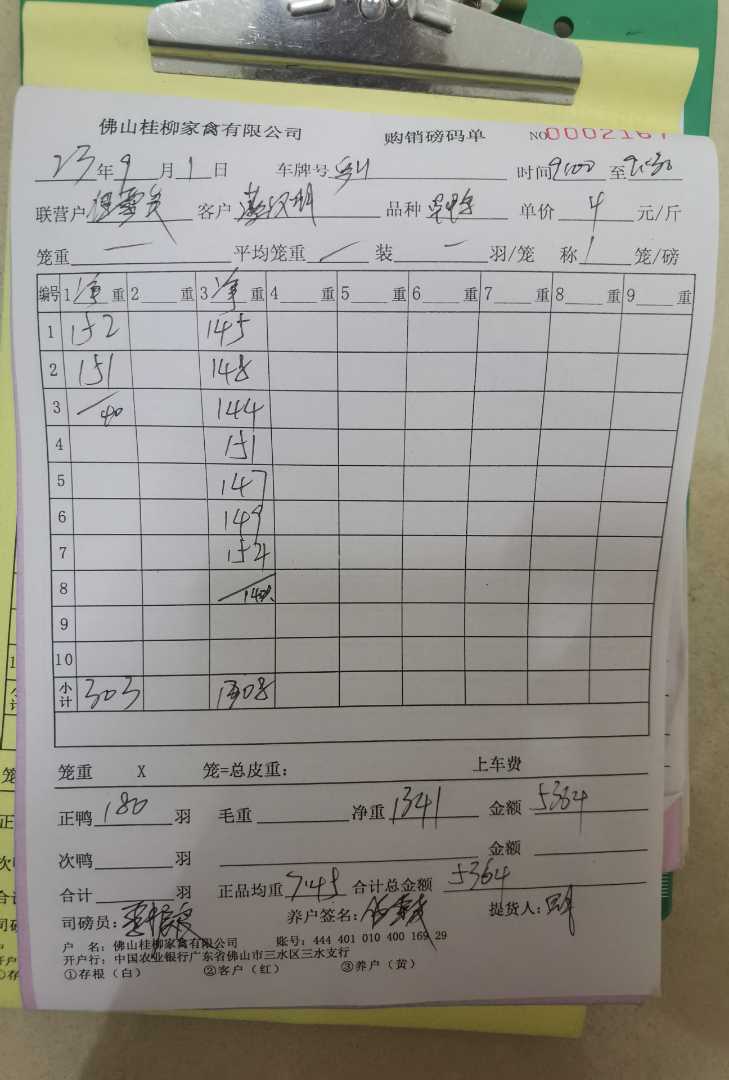 佛山桂柳家禽有限公司 购销磅码单 NO 0002167
23年9月1日 车牌号 时间9:00至9:30
联营户 客户 品种 单价 4 元/斤
笼重 一 平均笼重 / 装 一 羽/笼 称 1 笼/磅
编号 1 净 重 2 重 3 净 重 4 重 5 重 6 重 7 重 8 重 9 重
1 152 145
2 151 148
3 /40 144
4 151
5 147
6 149
7 154
8 /140
9
10
小计 303 1308
笼重 X 笼=总皮重: 上车费
正鸭 180 羽 毛重 净重 1341 金额 5364
次鸭 羽 金额
合计 羽 正品均重 7.45 合计总金额 5364
司磅员: 养户签名: 提货人:
户 名: 佛山桂柳家禽有限公司 账号: 444 401 010 400 169 29
开户行: 中国农业银行广东省佛山市三水区三水支行
①存根（白） ②客户（红） ③养户（黄）